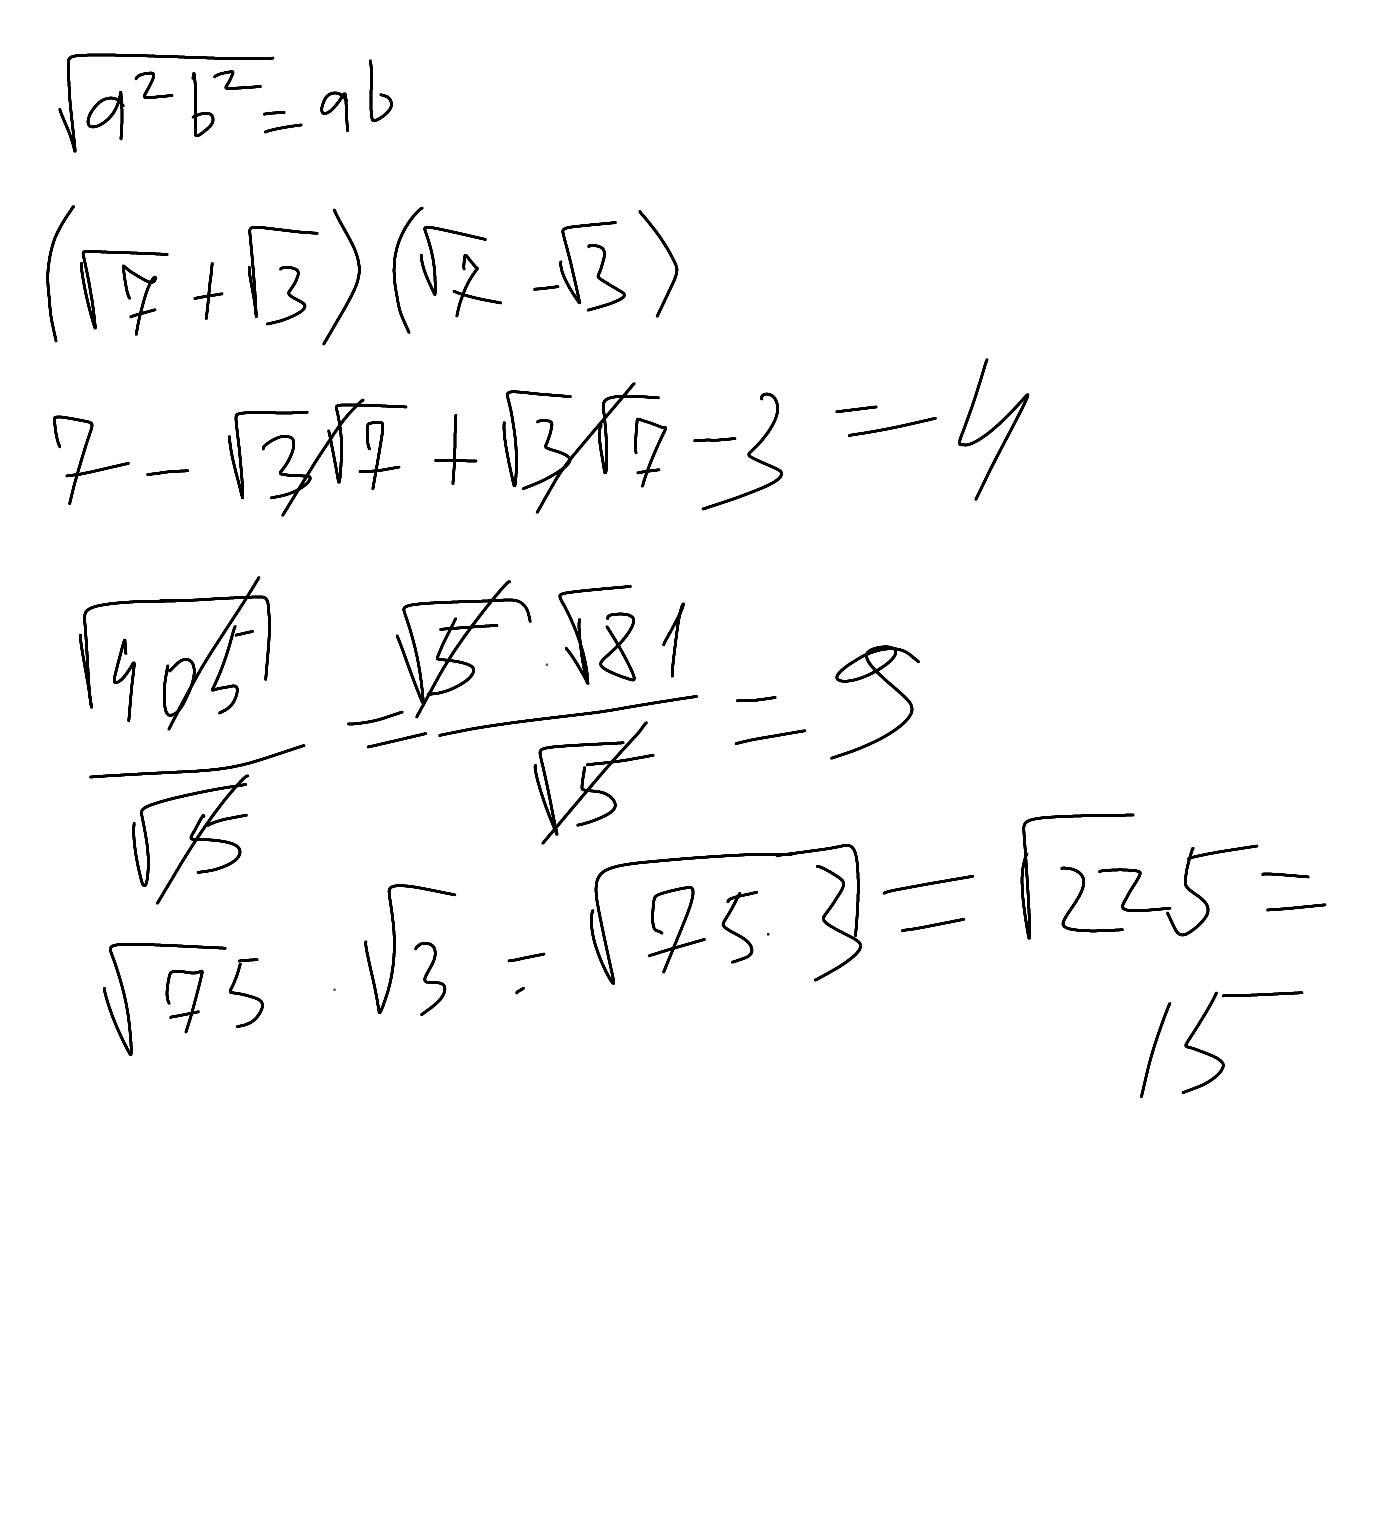 √(a²b²) = ab
(√7 + √3)(√7 - √3)
7 - √3√7 + √3√7 - 3 = 4
√405 / √5 = √5 · √81 / √5 = 9
√75 · √3 = √(75 · 3) = √225 =
15